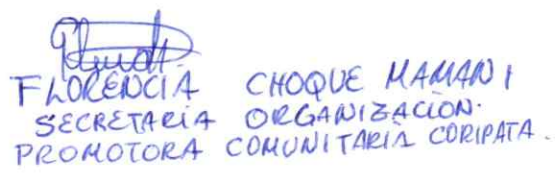 FLORENCIA CHOQUE MAMANI
SECRETARIA ORGANIZACION.
PROMOTORA COMUNITARIA CORIPATA.